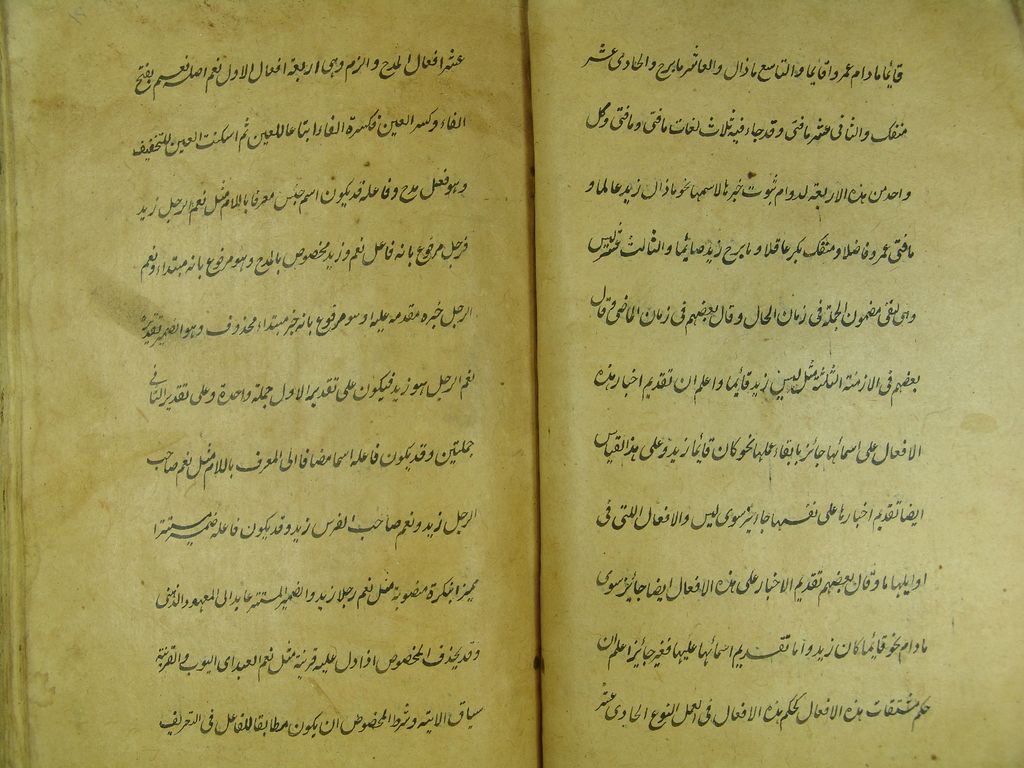 قائما مادام عمرو قائما والتاسع مازال والعاشر مابرح والحادی عشر
منفک والثانی عشر مافتئ وقد جاء فیه ثلاث لغات مافتئ ومافتی وکل
واحد من هذه الاربعة لدوام ثبوت خبرها لاسمها نحو مازال زید عالما و
مافتی عمرو فاضلا ومنفک بکر عاقلا ومابرح زید صائما والثالث عشر لیس
وهی لنفی مضمون الجملة فی زمان الحال وقال بعضهم فی زمان الماضی وقال
بعضهم فی الازمنة الثلثة مثل لیس زید قائما واعلم ان تقدیم اخبار هذه
الافعال علی اسمائها جائز بابقاء عملها نحو کان قائما زید وعلی هذا القیاس
ایضا تقدیم اخبارها علی نفسها جائز سوی لیس والافعال اللتی فی
اوایلها ما وقال بعضهم تقدیم الاخبار علی هذه الافعال ایضا جائز سوی
مادام نحو قائما کان زید واما تقدیم اسمائها علیها فغیر جائز اعلم ان
حکم مشتقات هذه الافعال کحکم هذه الافعال فی العمل النوع الحادی عشر
عشر افعال المدح والزم وهی اربعة افعال الاول نعم اصله نعم بفتح
الفاء وکسر العین فکسرة الفاء اتباعا للعین ثم اسکنت العین للتخفیف
وهو فعل مدح وفاعله قد یکون اسم جنس معرفا باللام مثل نعم الرجل زید
فرجل مرفوع بانه فاعل نعم وزید مخصوص بالمدح وهو مرفوع بانه مبتداء ونعم
الرجل خبره مقدمه علیه او مرفوع بانه خبر مبتداء محذوف وهو الضمیر تقدیره
نعم الرجل هو زید فیکون علی تقدیر الاول جملة واحدة وعلی تقدیر الثانی
جملتین وقد یکون فاعله اسما مضافا الی المعرف باللام مثل نعم صاحب
الرجل زید ونعم صاحب الفرس زید وقد یکون فاعله ضمیر مستترا
ممیزا بنکرة منصوبة مثل نعم رجلا زید والضمیر المستتر عاید الی المعهود الذهنی
وقد یحذف المخصوص اذا دل علیه قرینة مثل نعم العبد ای ایوب والقرینة
سیاق الایته وشرط المخصوص ان یکون مطابقا للفاعل فی التعریف